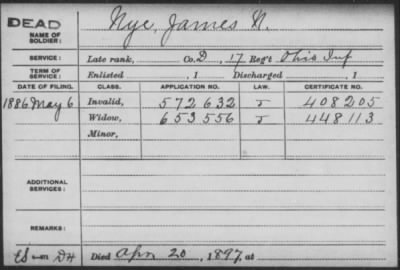 DEAD
NAME OF SOLDIER: Nye, James N.
SERVICE: Late rank, Co. D, 17 Reg't Ohio Inf
TERM OF SERVICE: Enlisted , 1 Discharged , 1
DATE OF FILING. CLASS. APPLICATION NO. LAW. CERTIFICATE NO.
1886 May 6 Invalid, 572632 408205
Widow, 653556 448113
Minor,
ADDITIONAL SERVICES:
REMARKS:
Died Apr 20, 1897, at